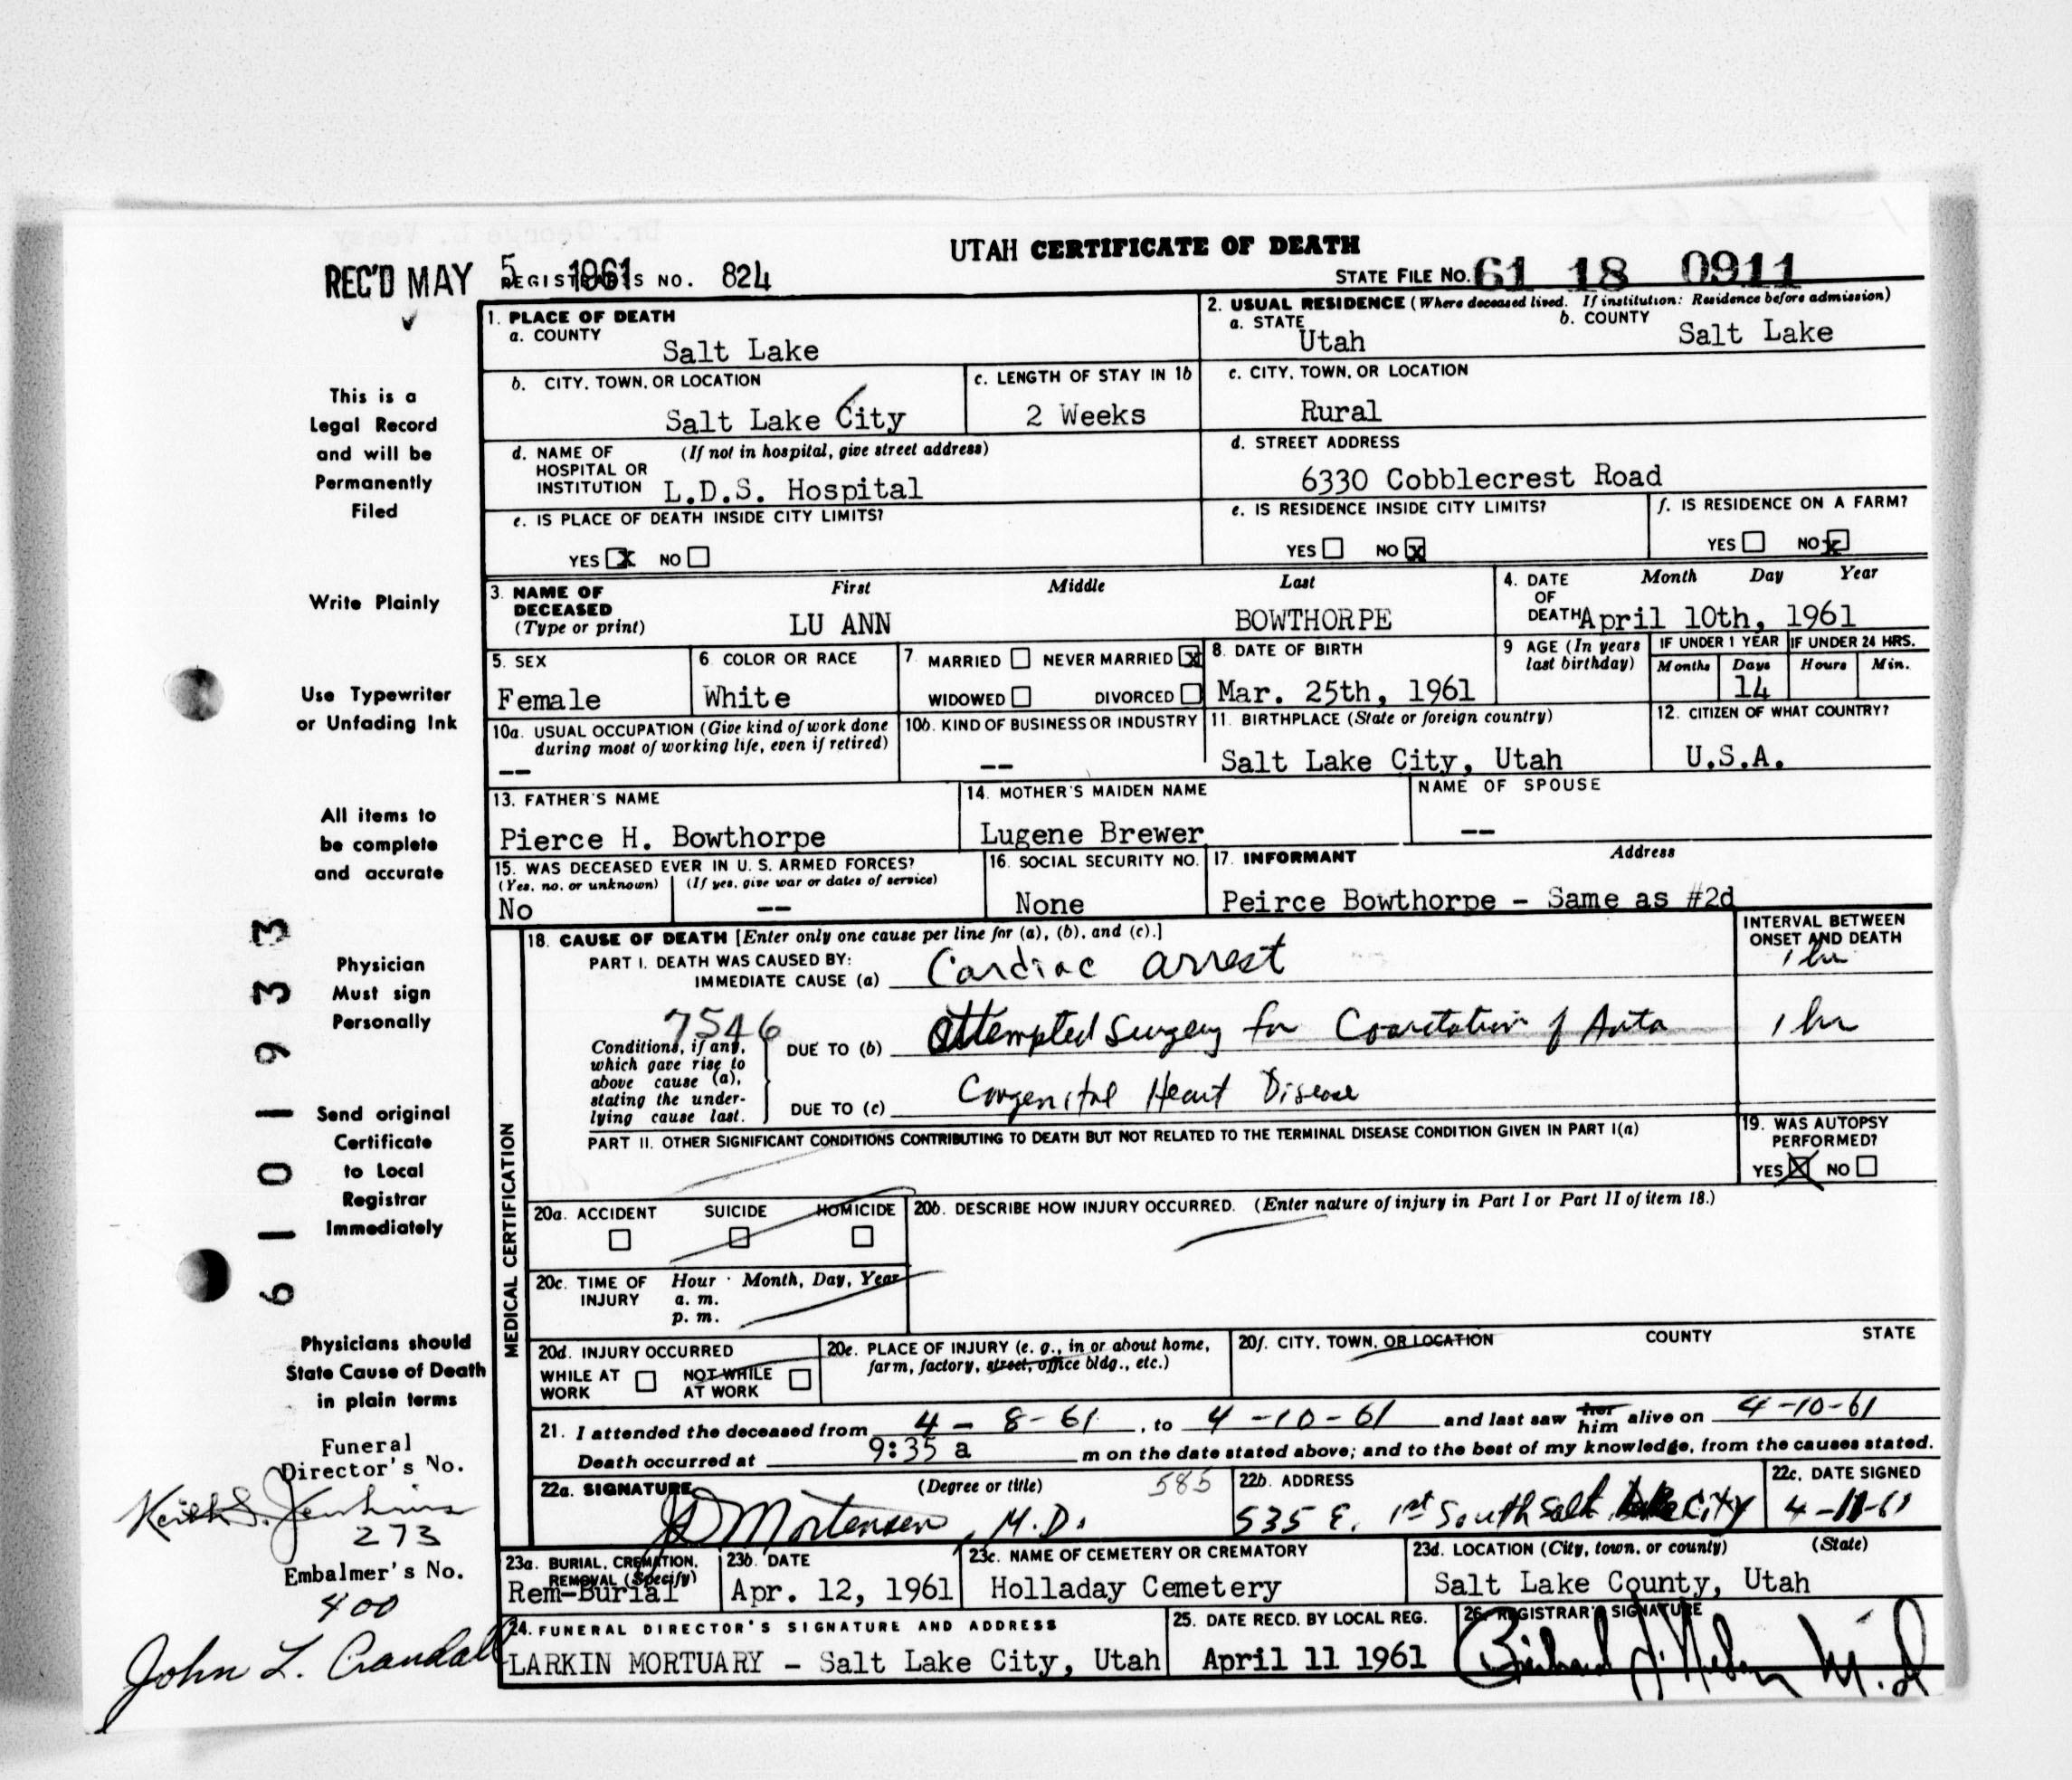 UTAH CERTIFICATE OF DEATH
REC'D MAY 5 1961
REGISTRAR'S NO. 824
STATE FILE NO. 61 18 0911
This is a
Legal Record
and will be
Permanently
Filed
Write Plainly
Use Typewriter
or Unfading Ink
All items to
be complete
and accurate
Physician
Must sign
Personally
Send original
Certificate
to Local
Registrar
Immediately
Physicians should
State Cause of Death
in plain terms
Funeral
Director's No.
Keith S. Jenkins
273
Embalmer's No.
400
John L. Crandall
6101933
1. PLACE OF DEATH
a. COUNTY
Salt Lake
b. CITY, TOWN, OR LOCATION
Salt Lake City
c. LENGTH OF STAY IN 1b
2 Weeks
d. NAME OF HOSPITAL OR INSTITUTION (If not in hospital, give street address)
L.D.S. Hospital
e. IS PLACE OF DEATH INSIDE CITY LIMITS?
YES X NO
2. USUAL RESIDENCE (Where deceased lived. If institution: Residence before admission)
a. STATE Utah
b. COUNTY Salt Lake
c. CITY, TOWN, OR LOCATION
Rural
d. STREET ADDRESS
6330 Cobblecrest Road
e. IS RESIDENCE INSIDE CITY LIMITS?
YES NO X
f. IS RESIDENCE ON A FARM?
YES NO X
3. NAME OF DECEASED (Type or print)
First Middle Last
LU ANN BOWTHORPE
4. DATE OF DEATH Month Day Year
April 10th, 1961
5. SEX
Female
6. COLOR OR RACE
White
7. MARRIED NEVER MARRIED X
WIDOWED DIVORCED
8. DATE OF BIRTH
Mar. 25th, 1961
9 AGE (In years last birthday)
IF UNDER 1 YEAR
Months Days
14
IF UNDER 24 HRS.
Hours Min.
10a. USUAL OCCUPATION (Give kind of work done during most of working life, even if retired)
--
10b. KIND OF BUSINESS OR INDUSTRY
--
11. BIRTHPLACE (State or foreign country)
Salt Lake City, Utah
12. CITIZEN OF WHAT COUNTRY?
U.S.A.
13. FATHER'S NAME
Pierce H. Bowthorpe
14. MOTHER'S MAIDEN NAME
Lugene Brewer
NAME OF SPOUSE
--
15. WAS DECEASED EVER IN U. S. ARMED FORCES?
(Yes, no, or unknown) (If yes, give war or dates of service)
No --
16. SOCIAL SECURITY NO.
None
17. INFORMANT Address
Peirce Bowthorpe - Same as #2d
MEDICAL CERTIFICATION
18. CAUSE OF DEATH [Enter only one cause per line for (a), (b), and (c).]
INTERVAL BETWEEN ONSET AND DEATH
PART I. DEATH WAS CAUSED BY:
IMMEDIATE CAUSE (a) Cardiac arrest 1 hr
7546
Conditions, if any, which gave rise to above cause (a), stating the underlying cause last.
DUE TO (b) Attempted Surgery for Coarctation of Aorta 1 hr
DUE TO (c) Congenital Heart Disease
PART II. OTHER SIGNIFICANT CONDITIONS CONTRIBUTING TO DEATH BUT NOT RELATED TO THE TERMINAL DISEASE CONDITION GIVEN IN PART I(a)
19. WAS AUTOPSY PERFORMED?
YES X NO
20a. ACCIDENT SUICIDE HOMICIDE
20b. DESCRIBE HOW INJURY OCCURRED. (Enter nature of injury in Part I or Part II of item 18.)
20c. TIME OF INJURY Hour Month, Day, Year
a. m.
p. m.
20d. INJURY OCCURRED
WHILE AT WORK NOT WHILE AT WORK
20e. PLACE OF INJURY (e. g., in or about home, farm, factory, street, office bldg., etc.)
20f. CITY, TOWN, OR LOCATION COUNTY STATE
21. I attended the deceased from 4-8-61, to 4-10-61 and last saw her him alive on 4-10-61
Death occurred at 9:35 a m on the date stated above; and to the best of my knowledge, from the causes stated.
22a. SIGNATURE (Degree or title) 585
JD Mortensen, M.D.
22b. ADDRESS
535 E. 1st South Salt Lake City
22c. DATE SIGNED
4-11-61
23a. BURIAL, CREMATION, REMOVAL (Specify)
Rem-Burial
23b. DATE
Apr. 12, 1961
23c. NAME OF CEMETERY OR CREMATORY
Holladay Cemetery
23d. LOCATION (City, town, or county) (State)
Salt Lake County, Utah
24. FUNERAL DIRECTOR'S SIGNATURE AND ADDRESS
LARKIN MORTUARY - Salt Lake City, Utah
25. DATE RECD. BY LOCAL REG.
April 11 1961
26. REGISTRAR'S SIGNATURE
M.D